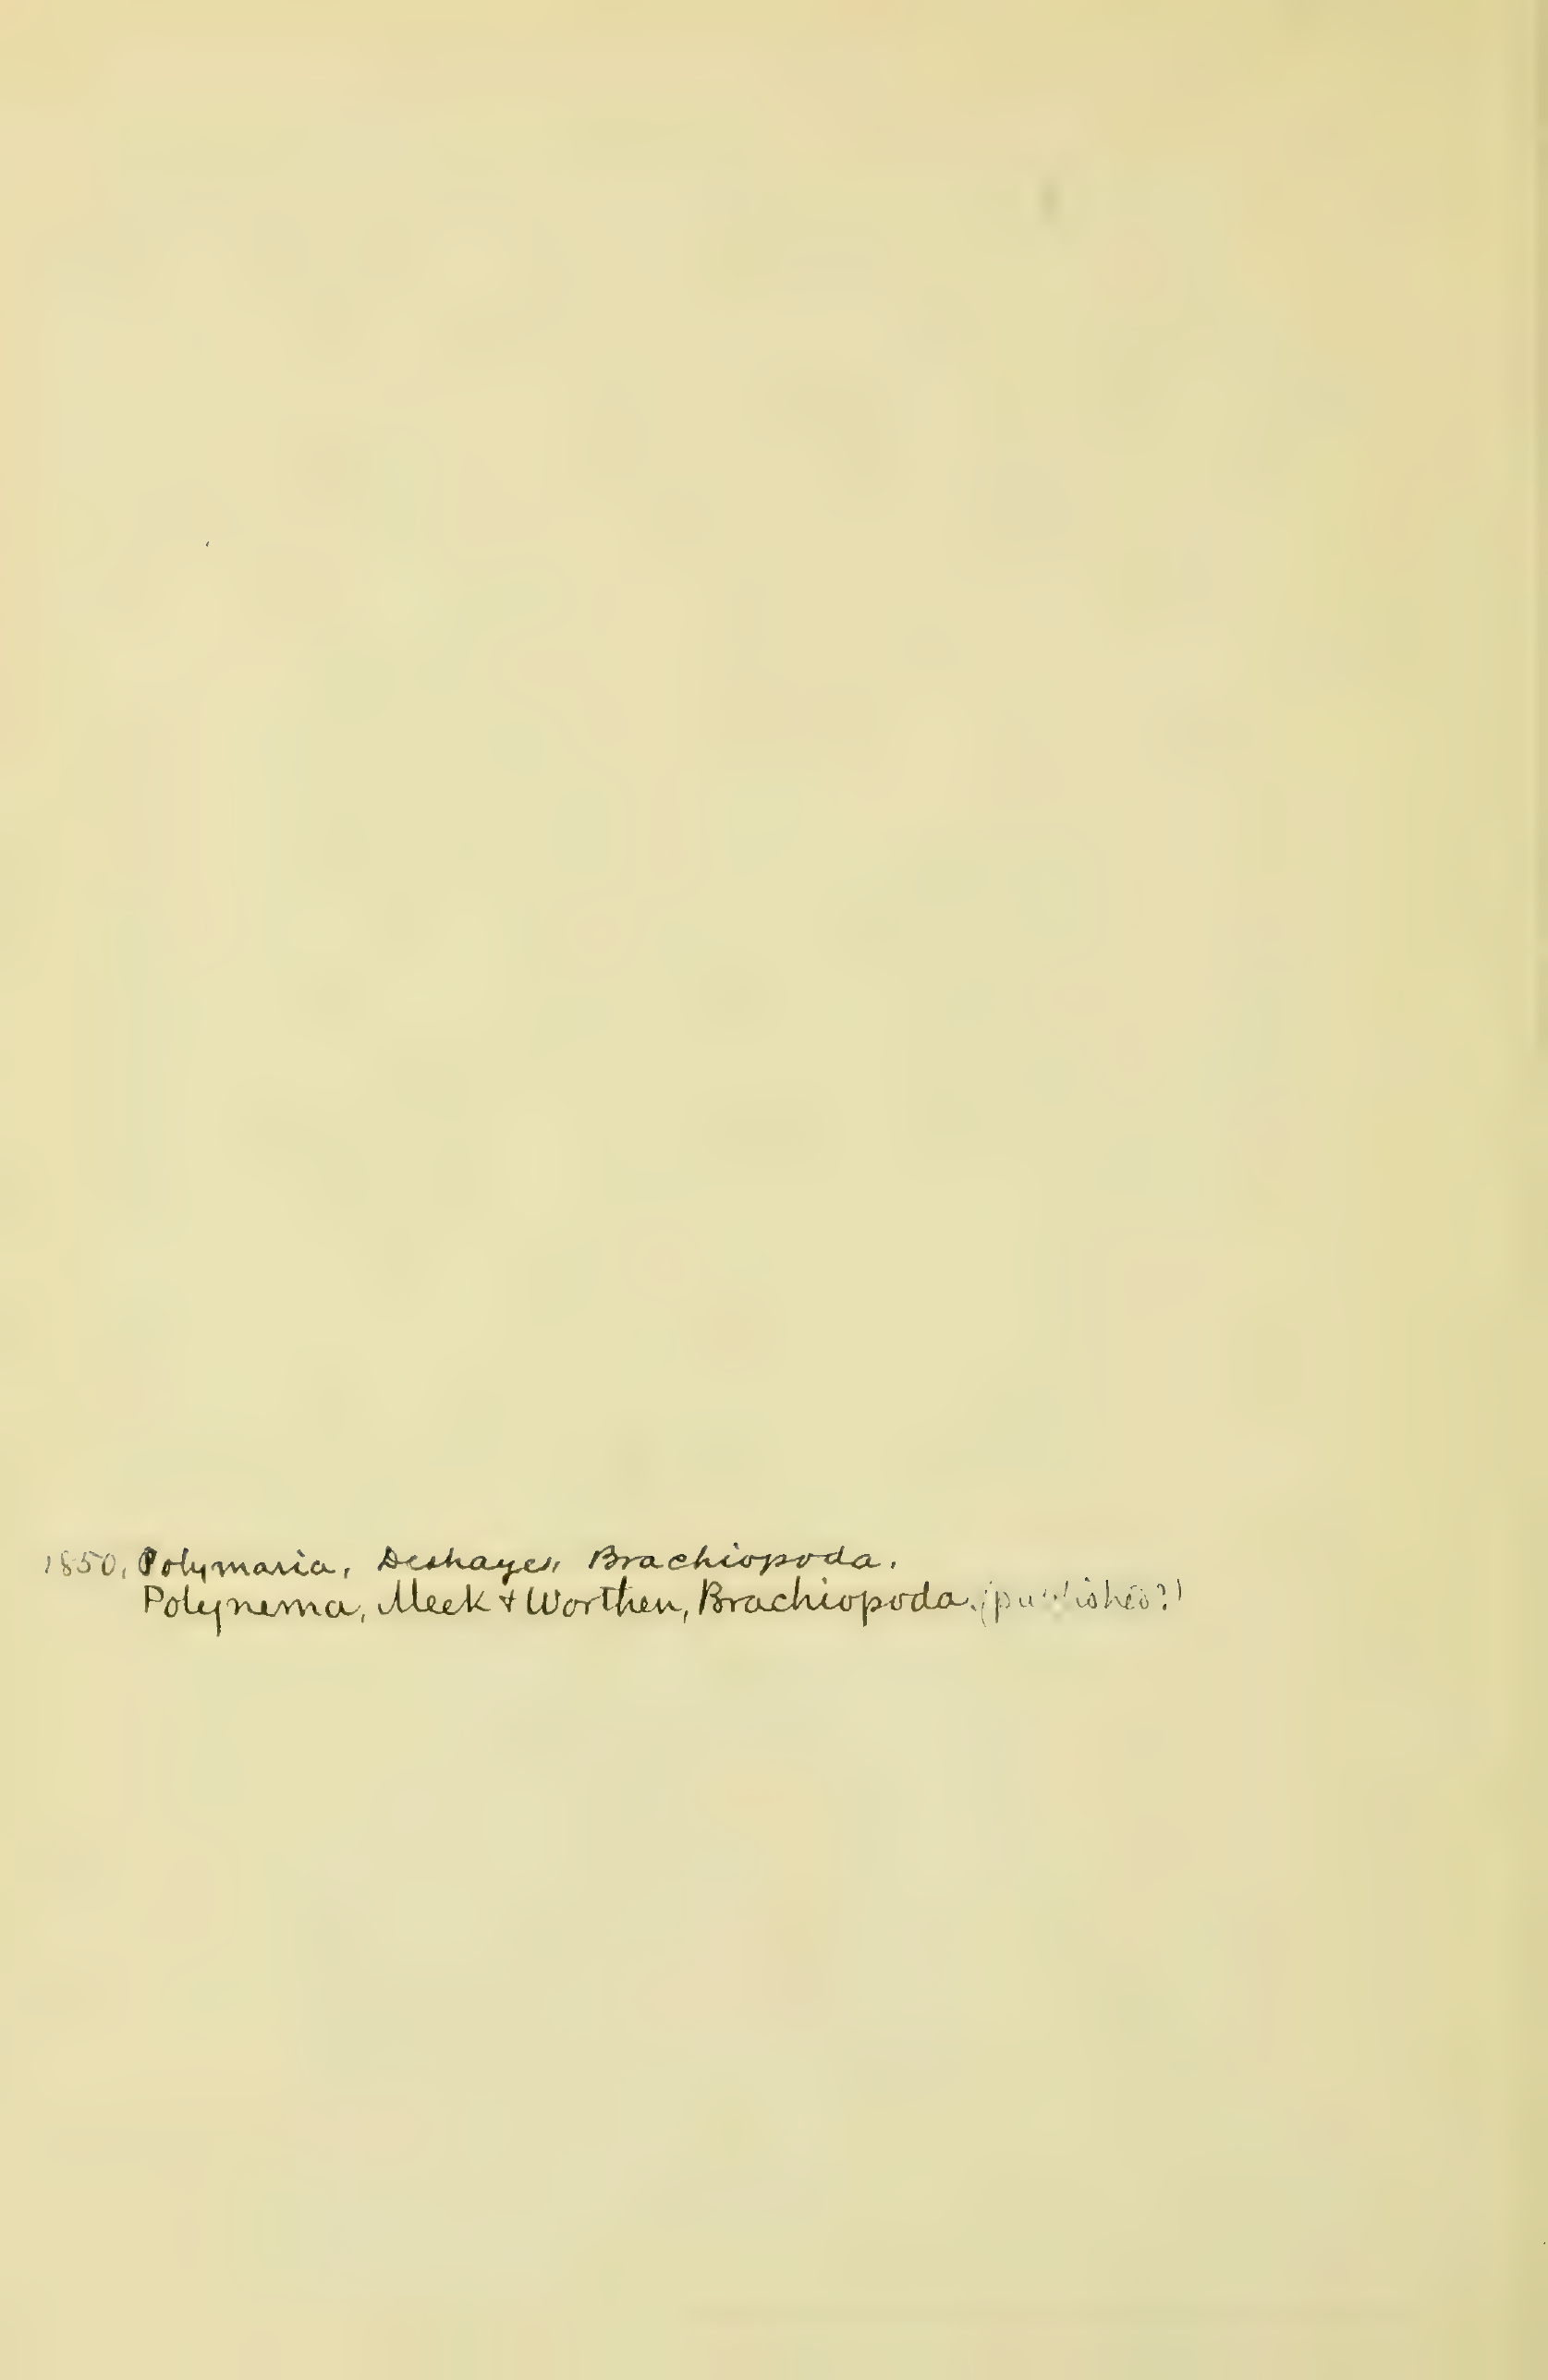 1850, Polymaria, Deshayes, Brachiopoda.
Polynema, Meek & Worthen, Brachiopoda. (published?)